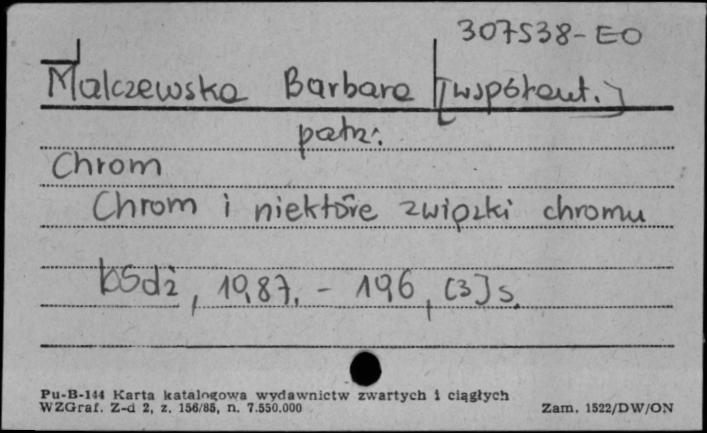 307538-EO
Malczewska Barbara [współaut.]
patrz:
Chrom
Chrom i niektóre związki chromu
Łódź, 1987. - 196, [3] s.
Pu-B-144 Karta katalogowa wydawnictw zwartych i ciągłych
WZGraf. Z-d 2, z. 156/85, n. 7.550.000
Zam. 1522/DW/ON